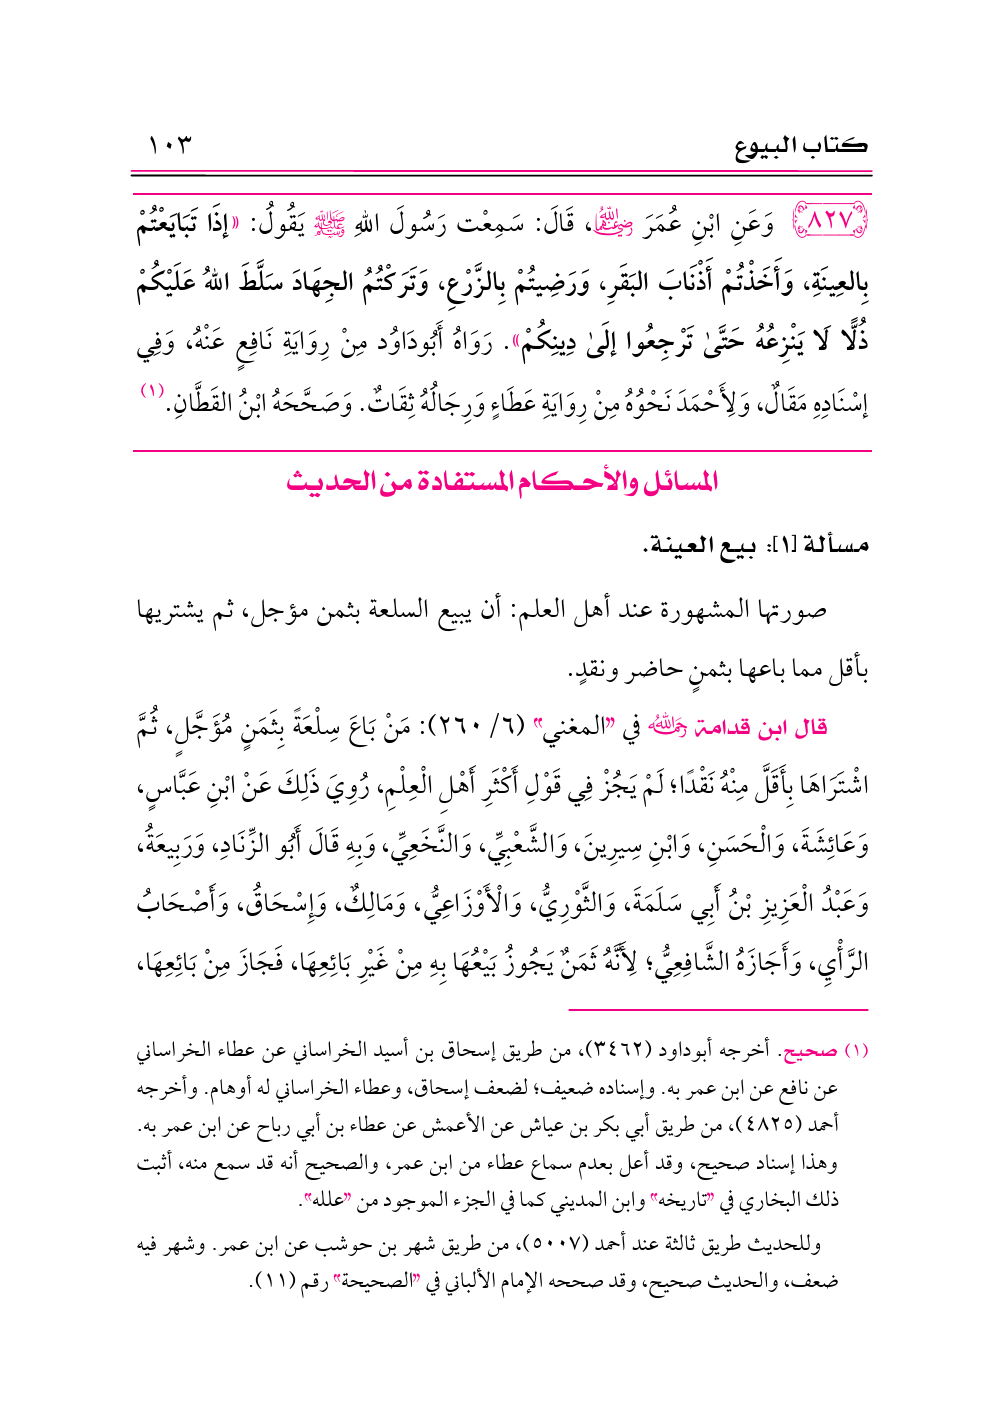 كتاب البيوع ١٠٣
﴿٨٢٧﴾ وَعَنِ ابْنِ عُمَرَ رضي الله عنهما، قَالَ: سَمِعْت رَسُولَ اللهِ ﷺ يَقُولُ: «إذَا تَبَايَعْتُمْ
بِالعِينَةِ، وَأَخَذْتُمْ أَذْنَابَ البَقَرِ، وَرَضِيتُمْ بِالزَّرْعِ، وَتَرَكْتُمُ الجِهَادَ سَلَّطَ اللهُ عَلَيْكُمْ
ذُلًّا لَا يَنْزِعُهُ حَتَّىٰ تَرْجِعُوا إلَىٰ دِينِكُمْ». رَوَاهُ أَبُودَاوُد مِنْ رِوَايَةِ نَافِعٍ عَنْهُ، وَفِي
إسْنَادِهِ مَقَالٌ، وَلِأَحْمَدَ نَحْوُهُ مِنْ رِوَايَةِ عَطَاءٍ وَرِجَالُهُ ثِقَاتٌ. وَصَحَّحَهُ ابْنُ القَطَّانِ.(١)
المسائل والأحكام المستفادة من الحديث
مسألة [١]: بيع العينة.
صورتها المشهورة عند أهل العلم: أن يبيع السلعة بثمن مؤجل، ثم يشتريها
بأقل مما باعها بثمنٍ حاضر ونقدٍ.
قال ابن قدامة رحمه الله في "المغني" (٦/ ٢٦٠): مَنْ بَاعَ سِلْعَةً بِثَمَنٍ مُؤَجَّلٍ، ثُمَّ
اشْتَرَاهَا بِأَقَلَّ مِنْهُ نَقْدًا؛ لَمْ يَجُزْ فِي قَوْلِ أَكْثَرِ أَهْلِ الْعِلْمِ، رُوِيَ ذَلِكَ عَنْ ابْنِ عَبَّاسٍ،
وَعَائِشَةَ، وَالْحَسَنِ، وَابْنِ سِيرِينَ، وَالشَّعْبِيِّ، وَالنَّخَعِيِّ، وَبِهِ قَالَ أَبُو الزِّنَادِ، وَرَبِيعَةُ،
وَعَبْدُ الْعَزِيزِ بْنُ أَبِي سَلَمَةَ، وَالثَّوْرِيُّ، وَالْأَوْزَاعِيُّ، وَمَالِكٌ، وَإِسْحَاقُ، وَأَصْحَابُ
الرَّأْيِ، وَأَجَازَهُ الشَّافِعِيُّ؛ لِأَنَّهُ ثَمَنٌ يَجُوزُ بَيْعُهَا بِهِ مِنْ غَيْرِ بَائِعِهَا، فَجَازَ مِنْ بَائِعِهَا،
(١) صحيح. أخرجه أبوداود (٣٤٦٢)، من طريق إسحاق بن أسيد الخراساني عن عطاء الخراساني
عن نافع عن ابن عمر به. وإسناده ضعيف؛ لضعف إسحاق، وعطاء الخراساني له أوهام. وأخرجه
أحمد (٤٨٢٥)، من طريق أبي بكر بن عياش عن الأعمش عن عطاء بن أبي رباح عن ابن عمر به.
وهذا إسناد صحيح، وقد أعل بعدم سماع عطاء من ابن عمر، والصحيح أنه قد سمع منه، أثبت
ذلك البخاري في "تاريخه" وابن المديني كما في الجزء الموجود من "علله".
وللحديث طريق ثالثة عند أحمد (٥٠٠٧)، من طريق شهر بن حوشب عن ابن عمر. وشهر فيه
ضعف، والحديث صحيح، وقد صححه الإمام الألباني في "الصحيحة" رقم (١١).